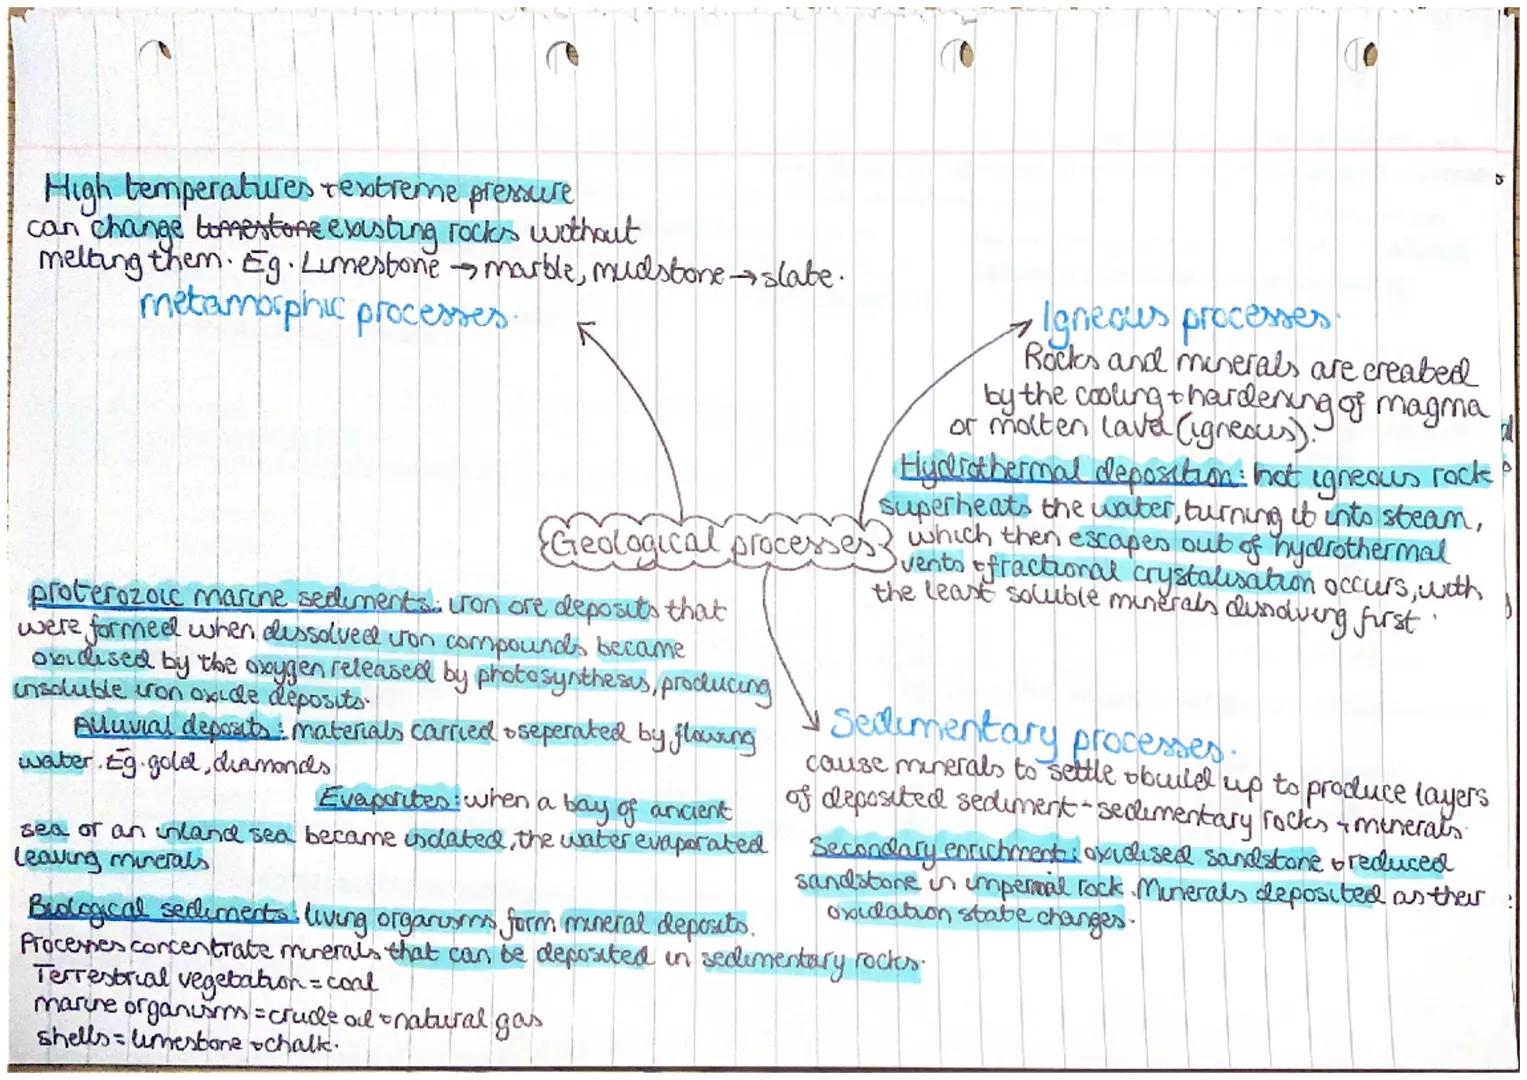 High temperatures + extreme pressure
can change limestone existing rocks without
melting them. Eg. Limestone → marble, mudstone → slate.
metamorphic processes.
Igneous processes.
Rocks and minerals are created
by the cooling + hardening of magma
or molten lava (igneous).
Hydrothermal deposition: hot igneous rock
superheats the water, turning it into steam,
which then escapes out of hydrothermal
vents + fractional crystalisation occurs, with
the least soluble minerals dissolving first.
Geological processes
proterozoic marine sediments: iron ore deposits that
were formed when dissolved iron compounds became
oxidised by the oxygen released by photosynthesis, producing
insoluble iron oxide deposits.
Alluvial deposits: materials carried + seperated by flowing
water. Eg. gold, diamonds
Evaporites: when a bay of ancient
sea or an inland sea became isolated, the water evaporated
leaving minerals
Biological sediments: living organisms form mineral deposits.
Processes concentrate minerals that can be deposited in sedimentary rocks.
Terrestrial vegetation = coal
marine organisms = crude oil + natural gas
shells = limestone + chalk.
Sedimentary processes.
cause minerals to settle + build up to produce layers
of deposited sediment - sedimentary rocks + minerals.
Secondary enrichment: oxidised sandstone + reduced
sandstone in imperial rock. Minerals deposited as their
oxidation state changes.